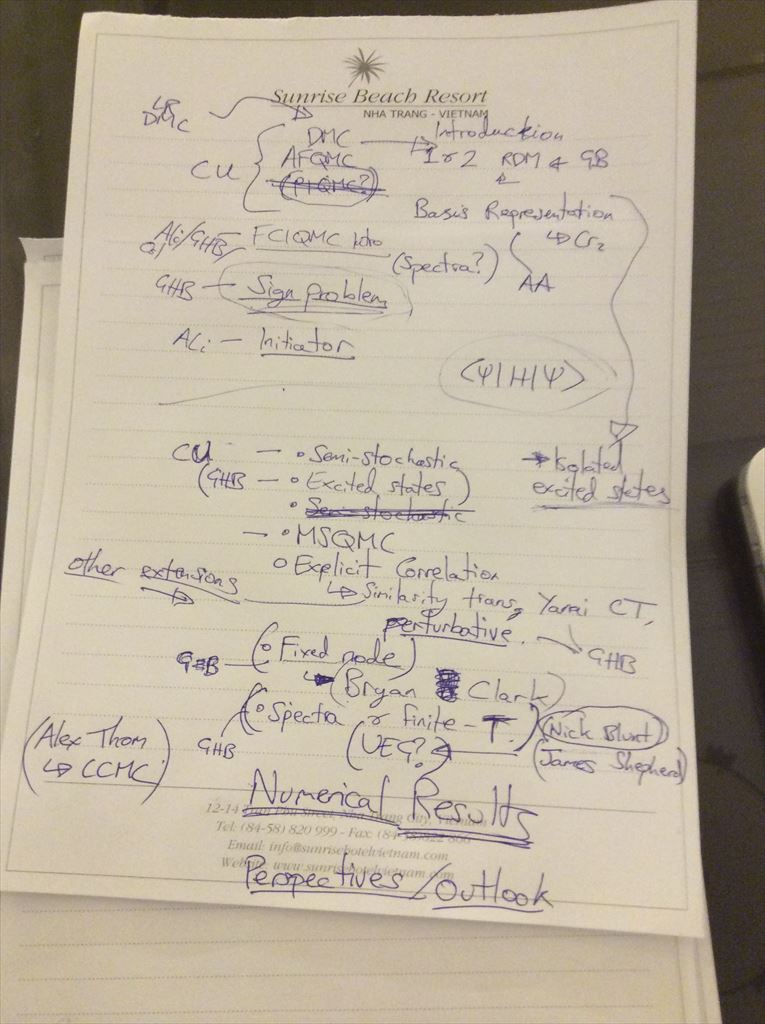 Sunrise Beach Resort
NHA TRANG - VIETNAM
LR
DMC
DMC
Introduction
AFQMC
1 or 2 RDM & GB
CU
(PIQMC?)
Basis Representation
↳ Cr₂
AA
Ali/GHB FCIQMC Intro
(Spectra?)
GHB - Sign problem
Ali - Initiator
<Ψ|H|Ψ>
CU - • Semi-stochastic
→ Isolated
excited states
(GHB - • Excited states)
• Semi-stochastic
- • MSQMC
o Explicit Correlation
other extensions
↳ Similarity trans, Yanai CT,
perturbative.
GHB
GHB (o Fixed node)
(Bryan Clark)
GHB (o Spectra or finite-T.)
(Nick Blunt)
(UEG?)
(James Shepherd)
(Alex Thom
↳ CCMC)
Numerical Results
Tel: (84-58) 820 999 - Fax: (84-58) 822 866
Email: info@sunrisehotelvietnam.com
Website: www.sunrisehotelvietnam.com
Perspectives/Outlook